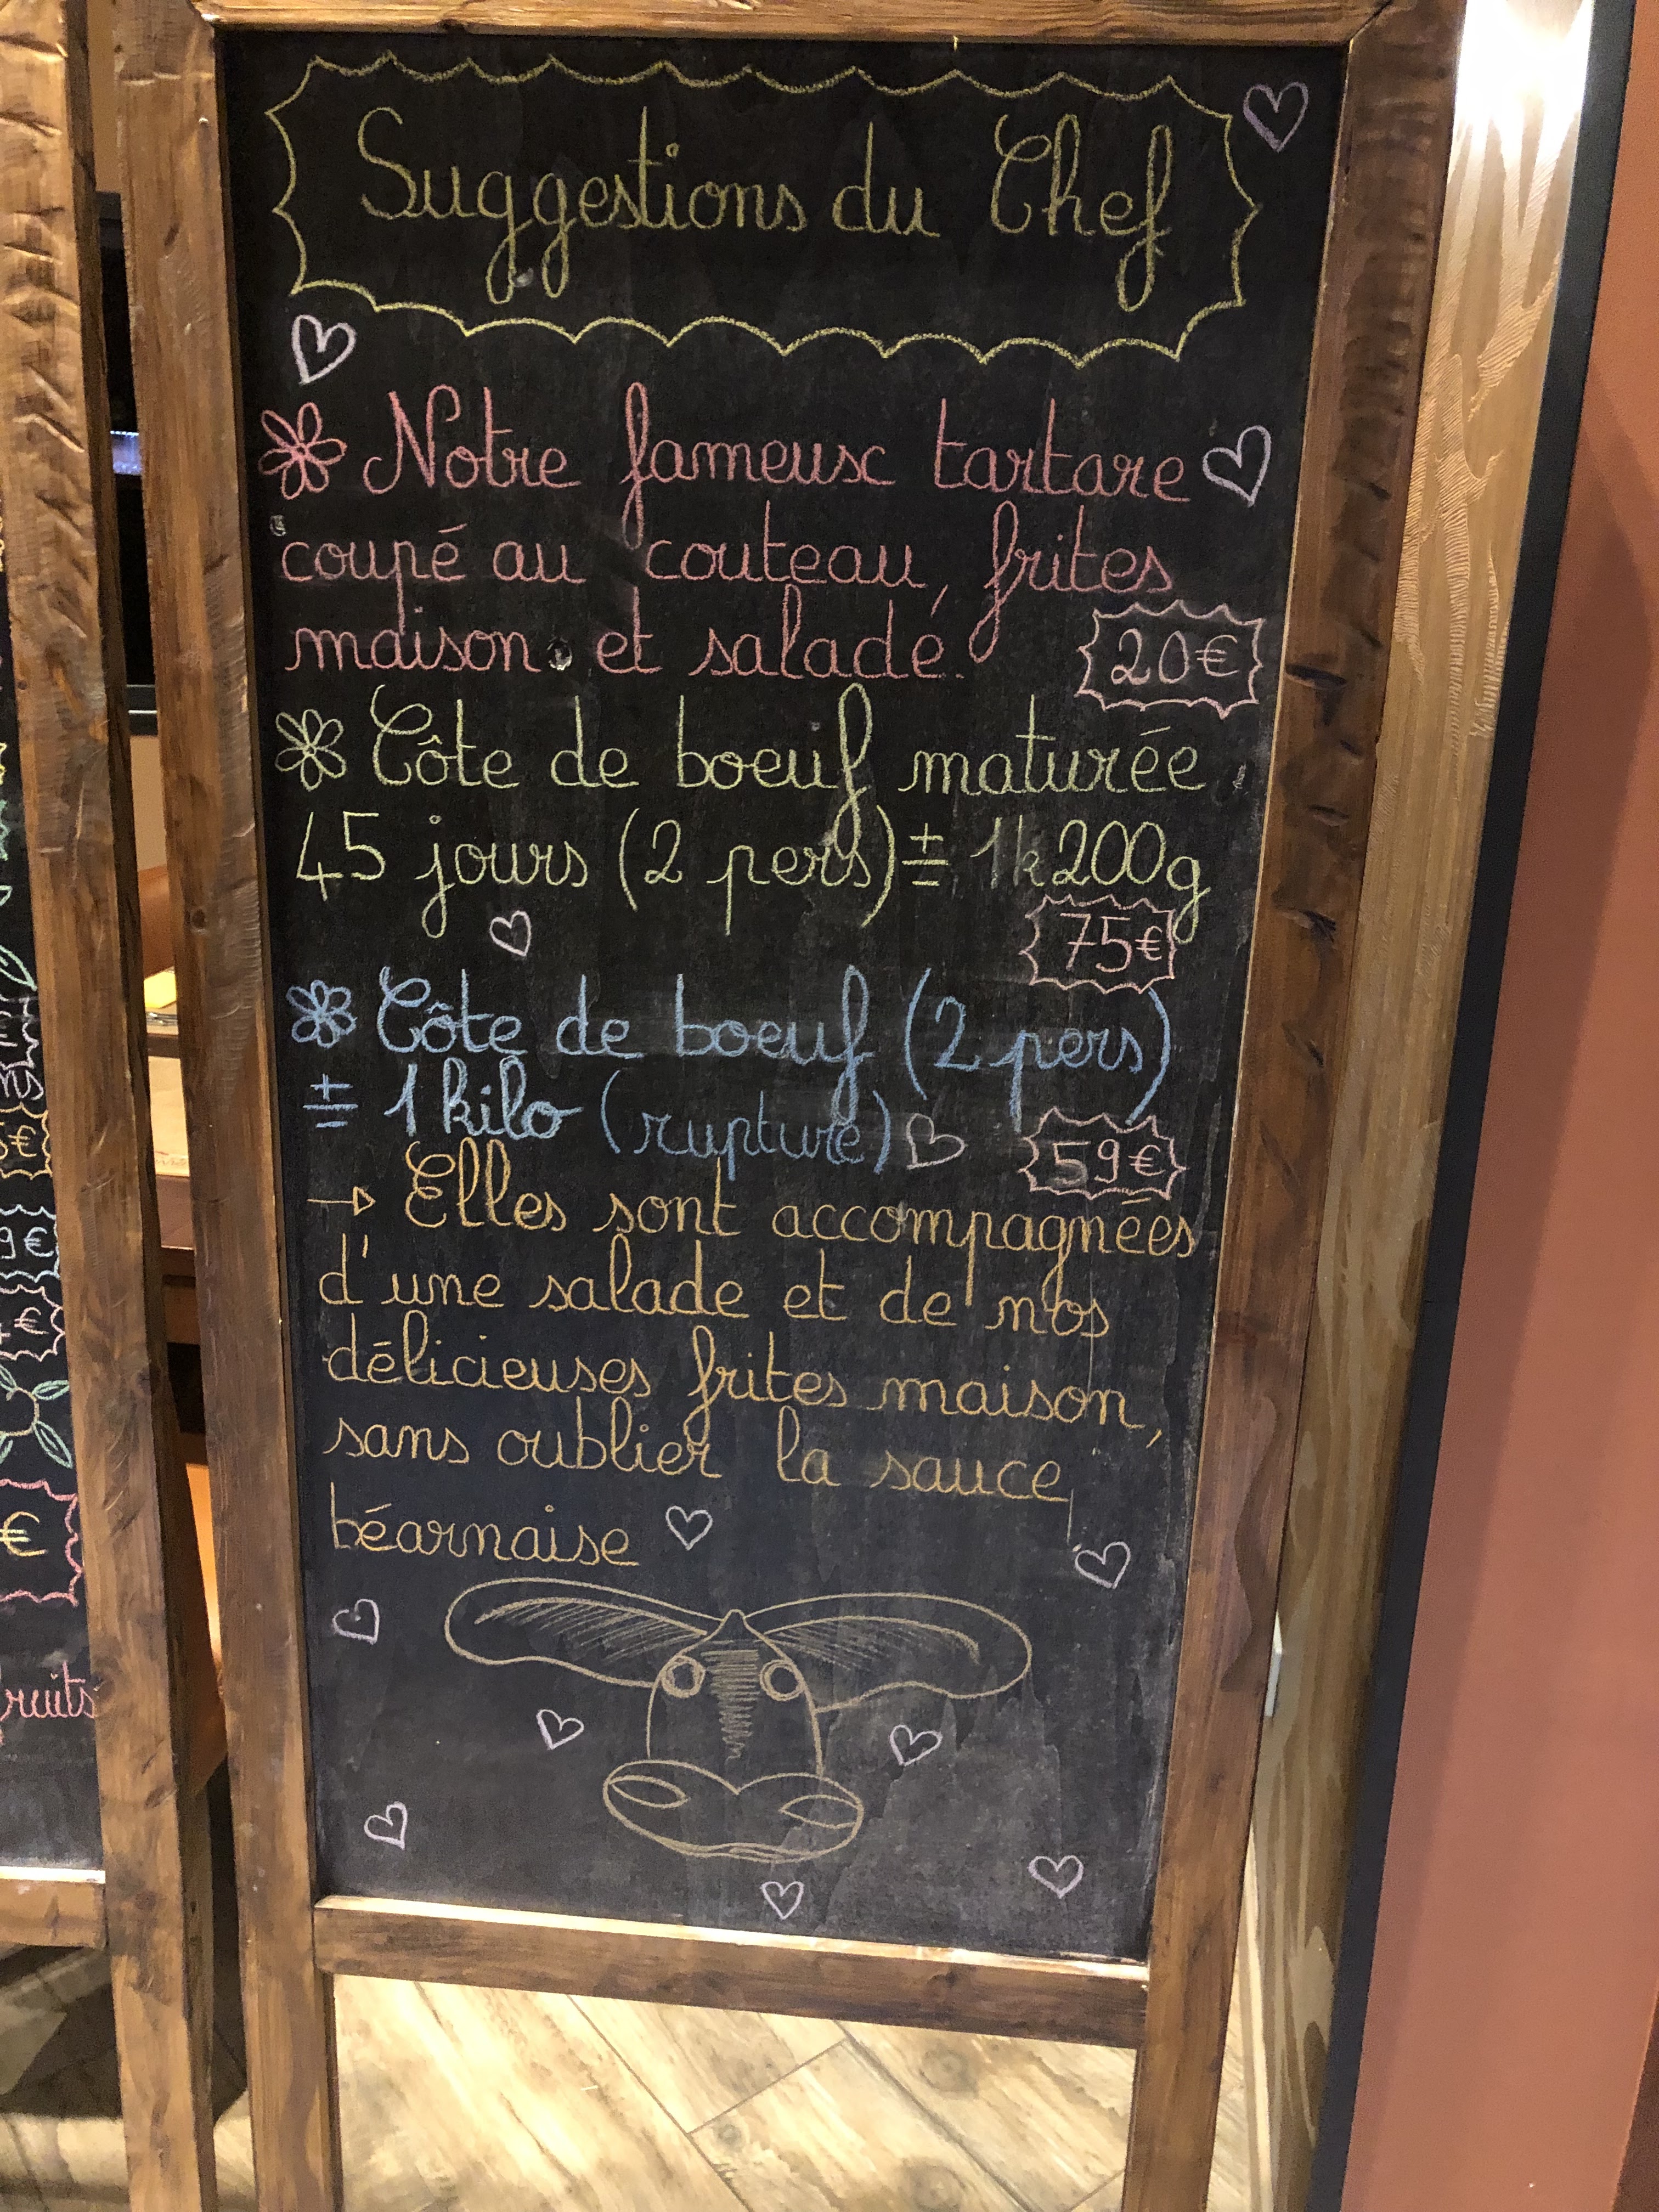 Suggestions du Chef
Notre fameux tartare
coupé au couteau, frites
maison et salade.
20€
Côte de boeuf maturée
45 jours (2 pers) ± 1k200g
75€
Côte de boeuf (2 pers)
± 1 kilo (rupture)
59€
→ Elles sont accompagnées
d'une salade et de nos
délicieuses frites maison,
sans oublier la sauce
béarnaise
9€
€
€